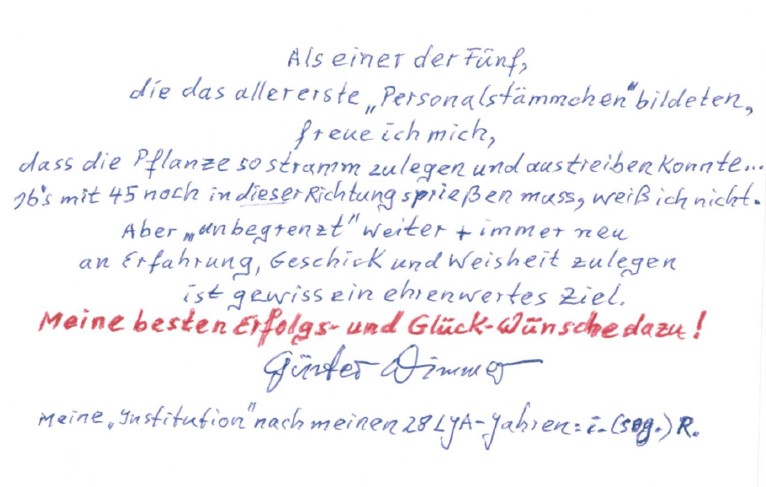 Als einer der Fünf,
die das allererste „Personalstämmchen" bildeten,
freue ich mich,
dass die Pflanze so stramm zulegen und austreiben konnte...
Ob's mit 45 noch in dieser Richtung sprießen muss, weiß ich nicht.
Aber „unbegrenzt" weiter + immer neu
an Erfahrung, Geschick und Weisheit zulegen
ist gewiss ein ehrenwertes Ziel.
Meine besten Erfolgs- und Glück-Wünsche dazu!
Günter Dimmer
Meine „Institution" nach meinen 28 LJA-Jahren: i. (sog.) R.